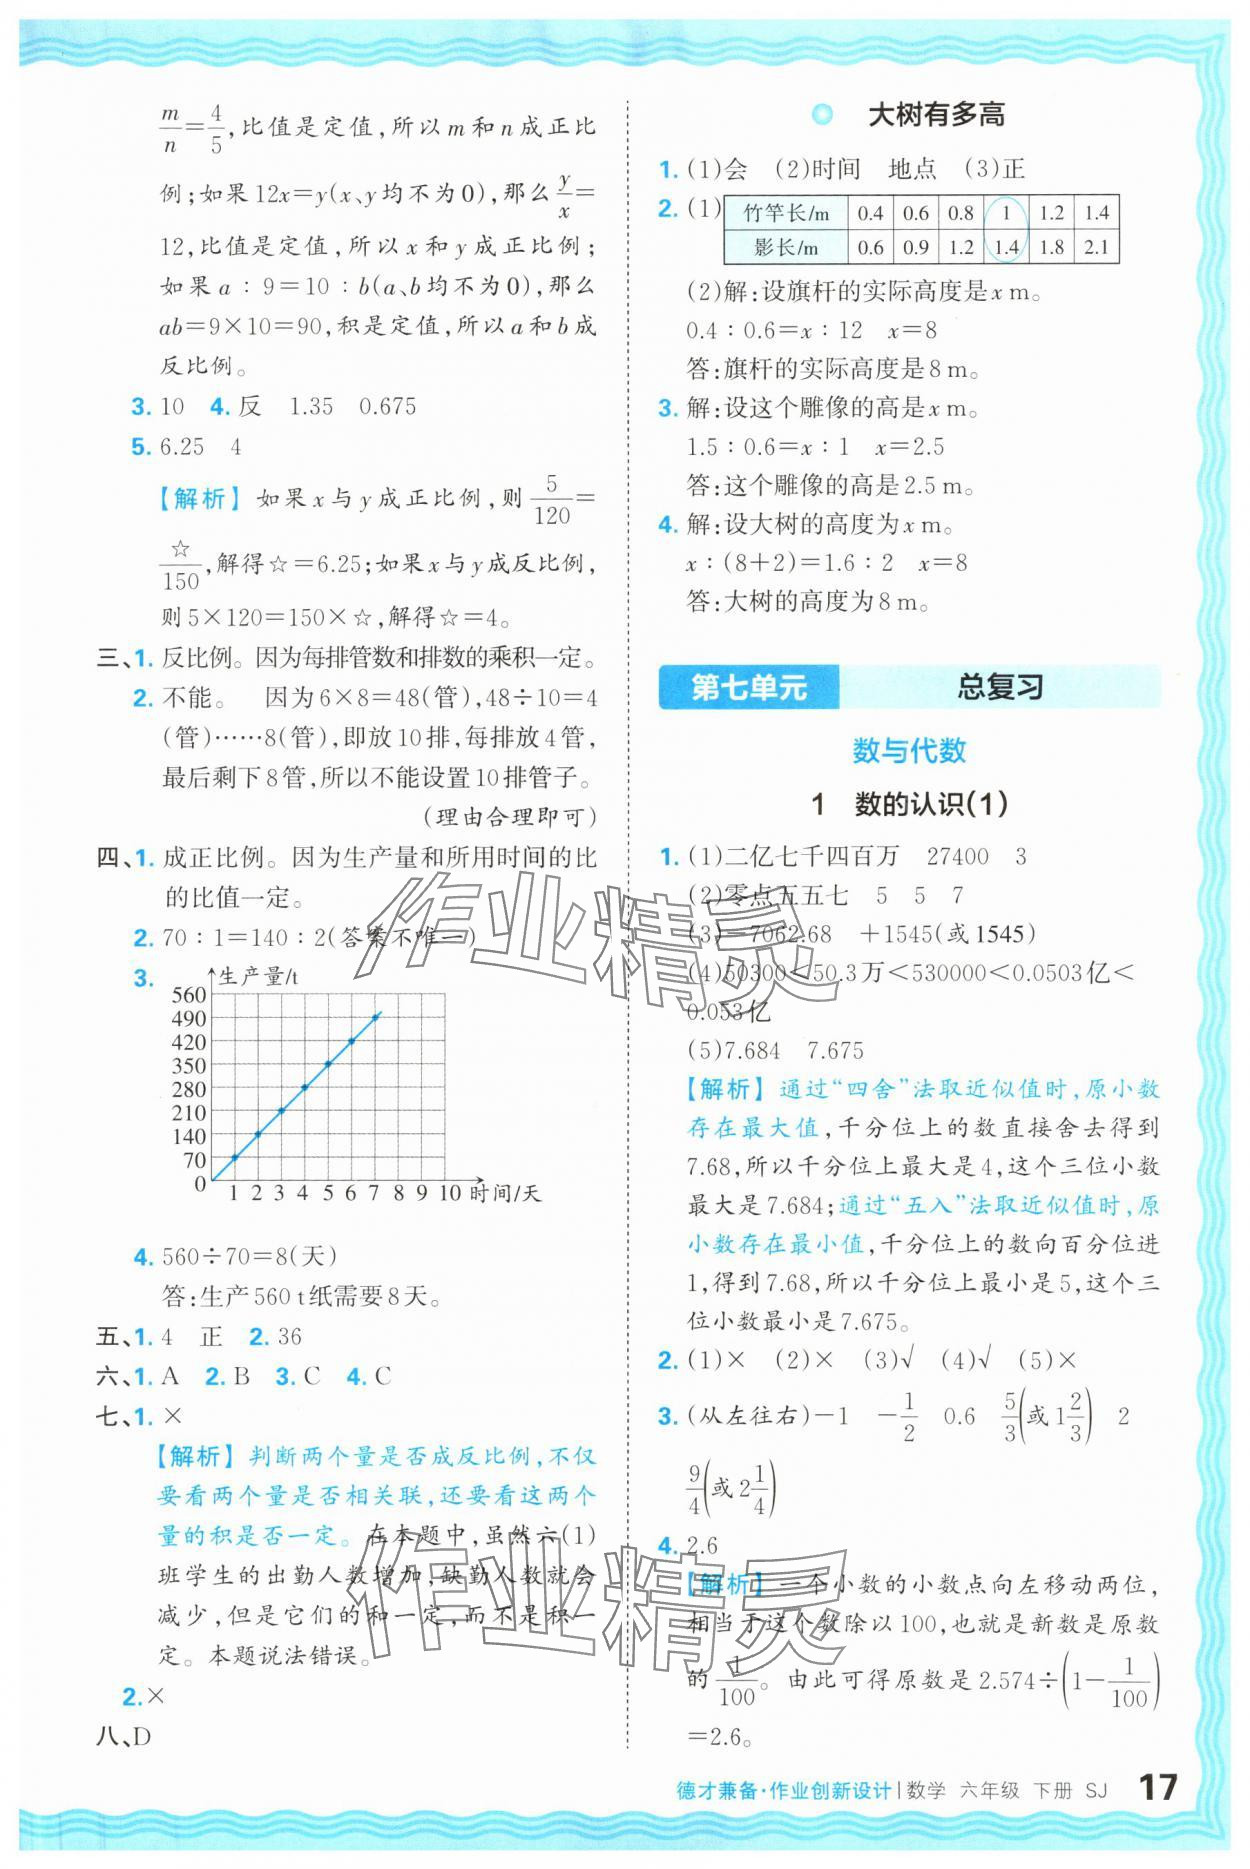 m/n=4/5,比值是定值,所以m和n成正比
例;如果12x=y(x、y均不为0),那么y/x=
12,比值是定值,所以x和y成正比例;
如果a:9=10:b(a、b均不为0),那么
ab=9×10=90,积是定值,所以a和b成
反比例。
3. 10 4. 反 1.35 0.675
5. 6.25 4
【解析】如果x与y成正比例,则5/120=
☆/150,解得☆=6.25;如果x与y成反比例,
则5×120=150×☆,解得☆=4。
三、1. 反比例。因为每排管数和排数的乘积一定。
2. 不能。 因为6×8=48(管),48÷10=4
(管)……8(管),即放10排,每排放4管,
最后剩下8管,所以不能设置10排管子。
(理由合理即可)
四、1. 成正比例。因为生产量和所用时间的比
的比值一定。
2. 70:1=140:2(答案不唯一)
3. 生产量/t
560
490
420
350
280
210
140
70
0 1 2 3 4 5 6 7 8 9 10 时间/天
4. 560÷70=8(天)
答:生产560 t纸需要8天。
五、1. 4 正 2. 36
六、1. A 2. B 3. C 4. C
七、1. ×
【解析】判断两个量是否成反比例,不仅
要看两个量是否相关联,还要看这两个
量的积是否一定。在本题中,虽然六(1)
班学生的出勤人数增加,缺勤人数就会
减少,但是它们的和一定,而不是积一
定。本题说法错误。
2. ×
八、D
大树有多高
1. (1)会 (2)时间 地点 (3)正
2. (1) 竹竿长/m 0.4 0.6 0.8 1 1.2 1.4
影长/m 0.6 0.9 1.2 1.4 1.8 2.1
(2)解:设旗杆的实际高度是x m。
0.4:0.6=x:12 x=8
答:旗杆的实际高度是8 m。
3. 解:设这个雕像的高是x m。
1.5:0.6=x:1 x=2.5
答:这个雕像的高是2.5 m。
4. 解:设大树的高度为x m。
x:(8+2)=1.6:2 x=8
答:大树的高度为8 m。
第七单元 总复习
数与代数
1 数的认识(1)
1. (1)二亿七千四百万 27400 3
(2)零点五五七 5 5 7
(3)-7062.68 +1545(或1545)
(4)50300<50.3万<530000<0.0503亿<
0.053亿
(5)7.684 7.675
【解析】通过“四舍”法取近似值时,原小数
存在最大值,千分位上的数直接舍去得到
7.68,所以千分位上最大是4,这个三位小数
最大是7.684;通过“五入”法取近似值时,原
小数存在最小值,千分位上的数向百分位进
1,得到7.68,所以千分位上最小是5,这个三
位小数最小是7.675。
2. (1)× (2)× (3)√ (4)√ (5)×
3. (从左往右)-1 -1/2 0.6 5/3(或1 2/3) 2
9/4(或2 1/4)
4. 2.6
【解析】一个小数的小数点向左移动两位,
相当于这个数除以100,也就是新数是原数
的1/100。由此可得原数是2.574÷(1-1/100)
=2.6。
作业精灵
作业精灵
德才兼备·作业创新设计 | 数学 六年级 下册 SJ 17